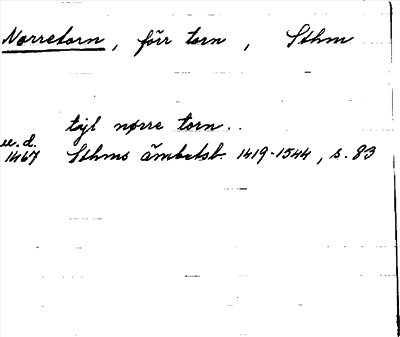 Norretorn, förr torn, Sthm
tijl nørre torn..
u.d.
1467 Sthms ämbetsb. 1419-1544, s. 83